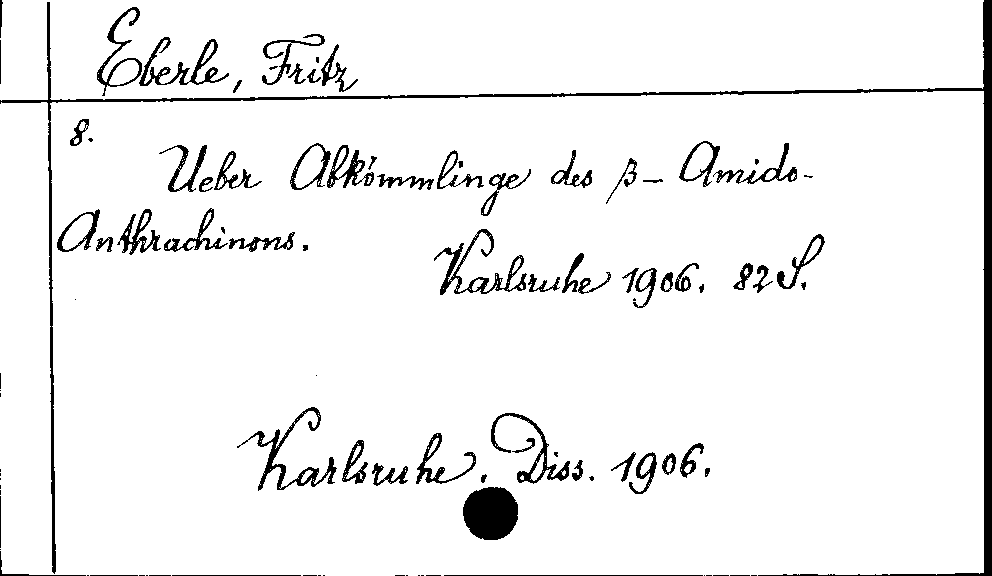 Eberle, Fritz
8.
Ueber Abkömmlinge des β-Amido-
Anthrachinons.
Karlsruhe 1906. 82 S.
Karlsruhe. Diss. 1906.